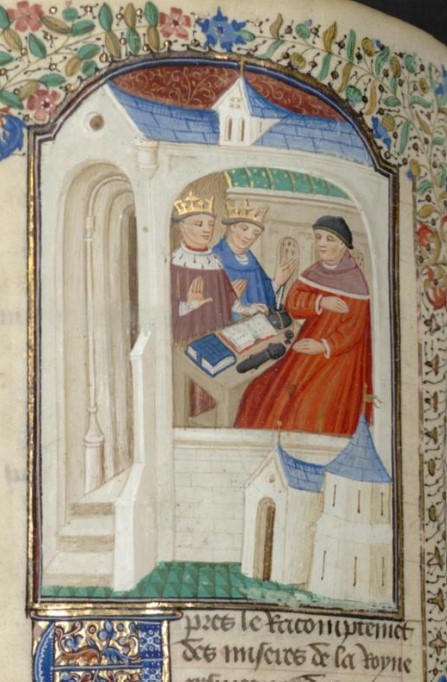 pres le Racomptemet
des miseres de la Royne